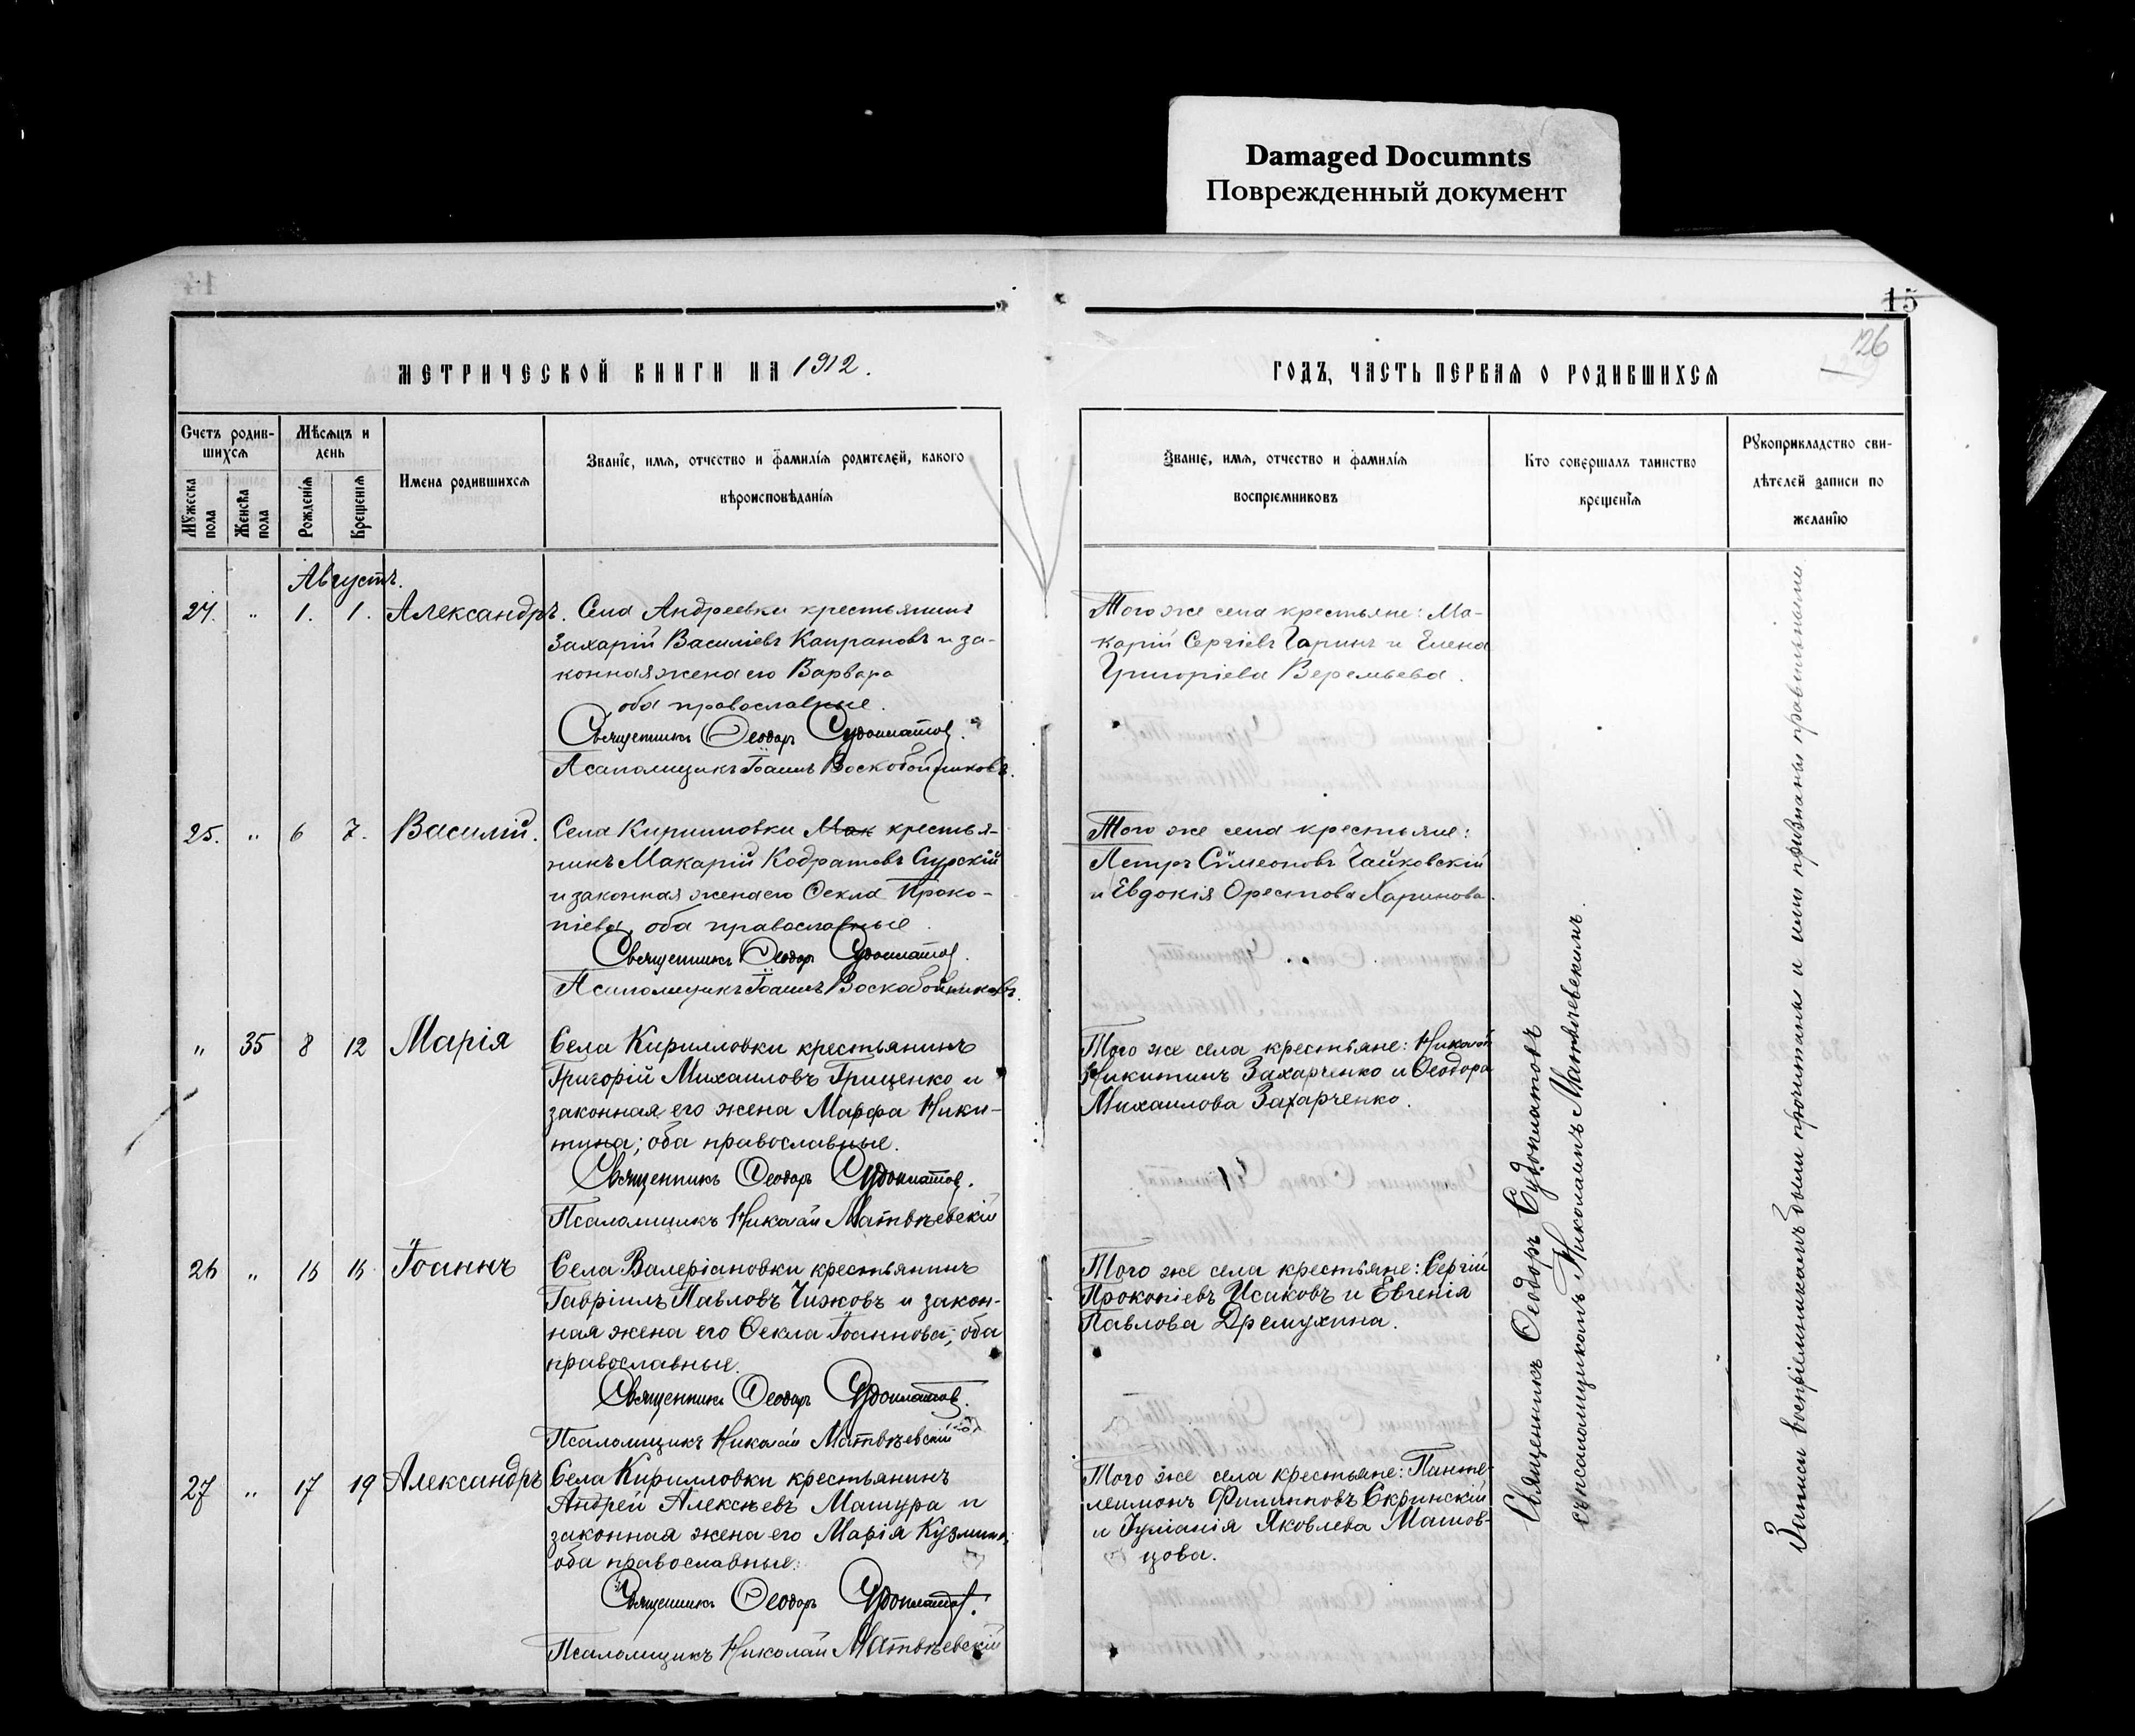 Damaged Documnts
Поврежденный документ
15
126
МЕТРИЧЕСКОЙ КНИГИ НА 1912.
ГОДЪ, ЧАСТЬ ПЕРВАЯ О РОДИВШИХСЯ
Счетъ родив-
шихся
Мѣсяцъ и
день
Мужеска
пола
Женска
пола
Рожденія
Крещенія
Имена родившихся
Званіе, имя, отчество и фамилія родителей, какого
вѣроисповѣданія
Званіе, имя, отчество и фамилія
воспріемниковъ
Кто совершалъ таинство
крещенія
Рукоприкладство сви-
дѣтелей записи по
желанію
Августъ.
24. " 1. 1. Александръ. Села Андреевки крестьянинъ
Захарій Василіевъ Капрановъ и за-
конная жена его Варвара
оба православные.
Священникъ Ѳеодоръ Судоплатов.
Псаломщикъ Іоаннъ Воскобойниковъ.
Того же села крестьяне: Ма-
карій Сергіевъ Гаринъ и Елена
Григоріева Веремьева.
25. " 6 7. Василій. Села Кирилловки Мак крестья-
нинъ Макарій Кодратовъ Сурскій
и законная жена его Ѳекла Проко-
піева, оба православные.
Священникъ Ѳеодоръ Судоплатов.
Псаломщикъ Іоаннъ Воскобойниковъ.
Того же села крестьяне:
Петръ Сѵмеоновъ Чайковскій
и Евдокія Орестова Харинова.
" 35 8 12 Марія Села Кирилловки крестьянинъ
Григорій Михаиловъ Гриценко и
законная его жена Марфа Ники-
тина; оба православные.
Священникъ Ѳеодоръ Судоплатов.
Псаломщикъ Николай Матвѣевскій
Того же села крестьяне: Николай
Никитинъ Захарченко и Ѳеодора
Михаилова Захарченко.
26 " 16 16 Іоаннъ Села Валеріановки крестьянинъ
Гавріилъ Павловъ Чижовъ и закон-
ная жена его Ѳекла Іоаннова; оба
православные.
Священникъ Ѳеодоръ Судоплатов.
Псаломщикъ Николай Матвѣевскій
Того же села крестьяне: Сергій
Прокопіевъ Исаковъ и Евгенія
Павлова Дремухина.
27 " 17 19 Александръ Села Кирилловки крестьянинъ
Андрей Алексѣевъ Мащура и
законная жена его Марія Кузмина;
оба православные.
Священникъ Ѳеодоръ Судоплатов.
Псаломщикъ Николай Матвѣевскій
Того же села крестьяне: Панте-
леимонъ Филипповъ Скринскій
и Іуліанія Яковлева Матов-
цова.
Священникъ Ѳеодоръ Судоплатовъ
съ псаломщикомъ Николаемъ Матвѣевскимъ.
Записи воспріемникамъ были прочитаны и ими признаны правильными